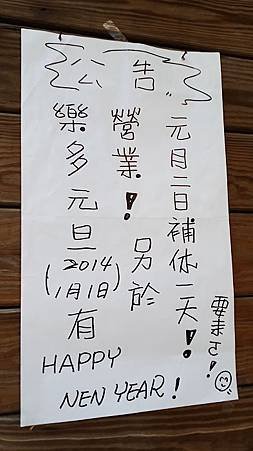 公告
樂多元旦(2014 1月1日)有
營業！另於
元月二日補休一天！
要來ㄛ！
HAPPY
NEN YEAR！